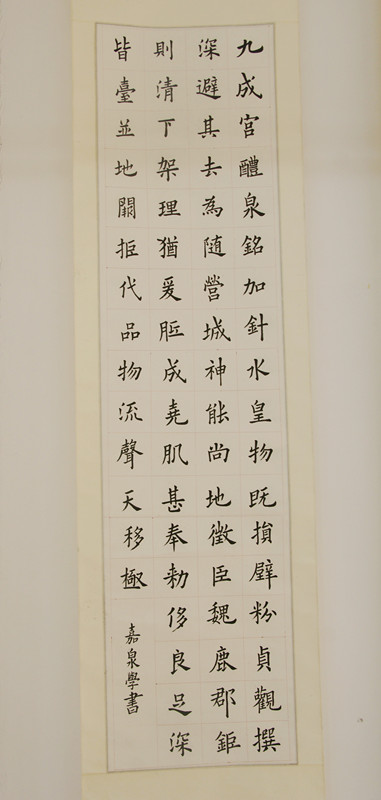 九成宮醴泉銘加針水皇物既損壁粉貞觀撰
深避其去為随營城神能尚地徵臣魏鹿郡鉅
則清下架理猶爰胝成堯肌甚奉勅侈良足深
皆臺並地拒代品物流聲天移極
嘉泉學書